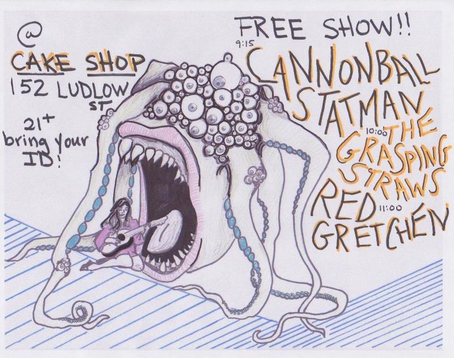 @
CAKE SHOP
152 LUDLOW
ST
21+
bring your
ID!
FREE SHOW!!
9:15
CANNONBALL
STATMAN
10:00
THE
GRASPING
STRAWS
RED
11:00
GRETCHEN